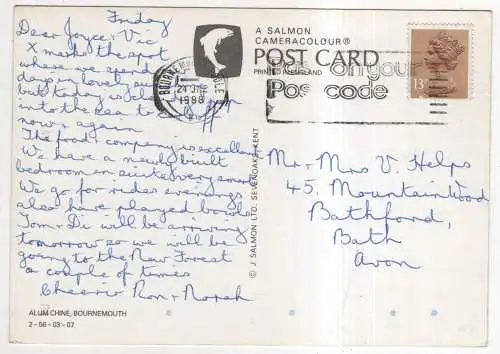 Friday
Dear Joyce + Vic
X marks the spot
where we spend
days in lovely
but today is
into the sea to
now + again
The food + company is excellent
We have a newly built
bedroom en suite very smart
We go for rides evenings
also have played bowls
Tom + Di will be arriving
tomorrow so we will be
going to the New Forest
a couple of times
Cheerio Ron + Norah
ALUM CHINE, BOURNEMOUTH
2-56-03-07
A SALMON
CAMERACOLOUR®
POST CARD
PRINTED IN ENGLAND
© J SALMON LTD. SEVENOAKS KENT
24
1988
on your
Post code
13
Mr + Mrs V. Helps
45, Mountain Wood
Bathford,
Bath
Avon